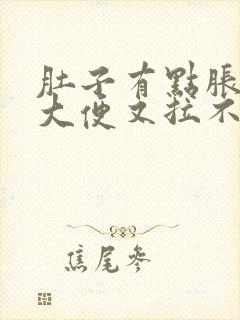 肚子有點脹
大便又拉不
焦尾參